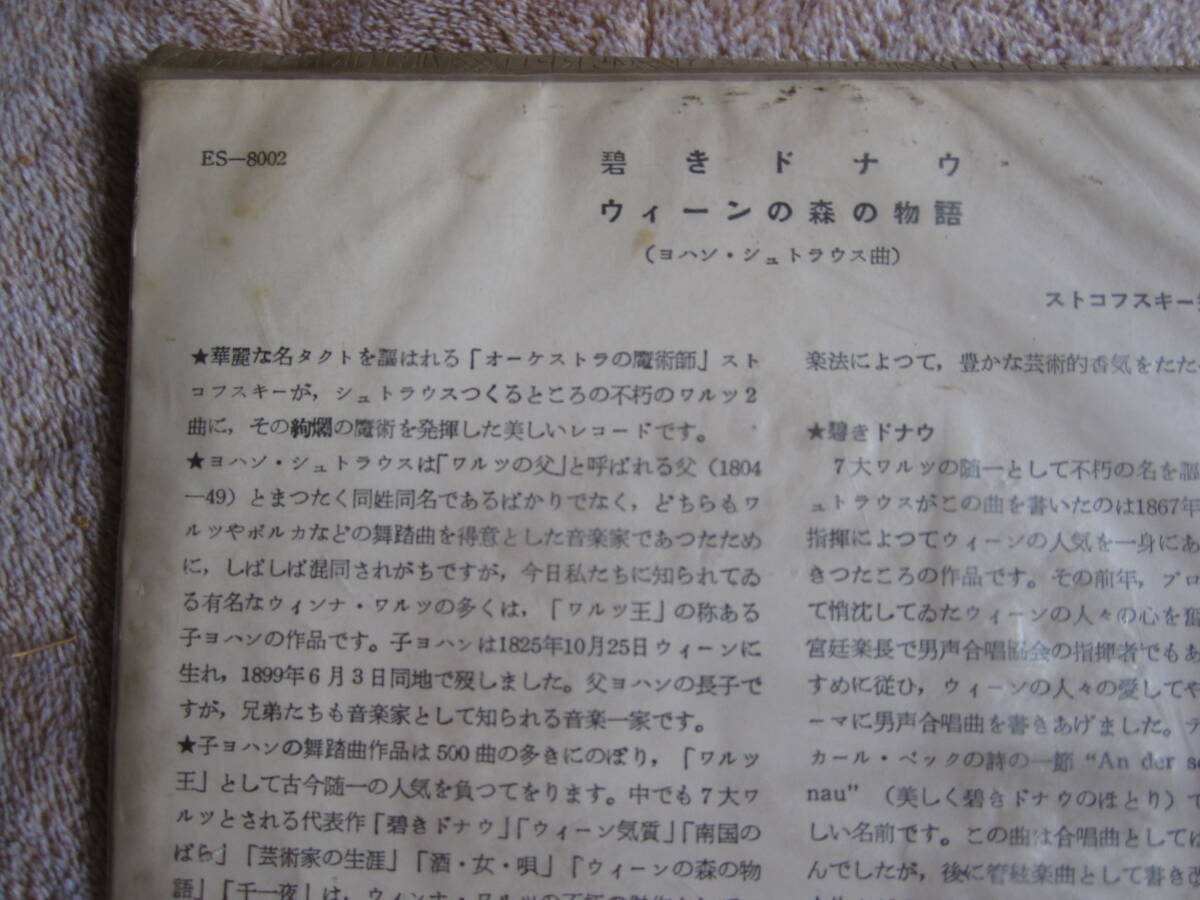 ES—8002
碧きドナウ
ウィーンの森の物語
（ヨハン・シュトラウス曲）
ストコフスキー
★華麗な名タクトを謳はれる「オーケストラの魔術師」スト
コフスキーが，シュトラウスつくるところの不朽のワルツ2
曲に，その絢爛の魔術を発揮した美しいレコードです。
★ヨハン・シュトラウスは「ワルツの父」と呼ばれる父（1804
—49）とまつたく同姓同名であるばかりでなく，どちらもワ
ルツやポルカなどの舞踏曲を得意とした音楽家であつたため
に，しばしば混同されがちですが，今日私たちに知られてゐ
る有名なウィンナ・ワルツの多くは，「ワルツ王」の称ある
子ヨハンの作品です。子ヨハンは1825年10月25日ウィーンに
生れ，1899年6月3日同地で歿しました。父ヨハンの長子で
すが，兄弟たちも音楽家として知られる音楽一家です。
★子ヨハンの舞踏曲作品は500曲の多きにのぼり，「ワルツ
王」として古今随一の人気を負つてをります。中でも7大ワ
ルツとされる代表作「碧きドナウ」「ウィーン気質」「南国の
ばら」「芸術家の生涯」「酒・女・唄」「ウィーンの森の物
語」「千一夜」は，ウィンナ・ワルツの不朽の
楽法によつて，豊かな芸術的香気をたた
★碧きドナウ
7大ワルツの随一として不朽の名を謳
ュトラウスがこの曲を書いたのは1867年
指揮によつてウィーンの人気を一身にあ
きつたころの作品です。その前年，プロ
て悄沈してゐたウィーンの人々の心を奮
宮廷楽長で男声合唱協会の指揮者でもあ
すめに従ひ，ウィーンの人々の愛してや
ーマに男声合唱曲を書きあげました。テ
カール・ベックの詩の一節“An der sc
nau”（美しく碧きドナウのほとり）で
しい名前です。この曲は合唱曲としては
んでしたが，後に管絃楽曲として書き改